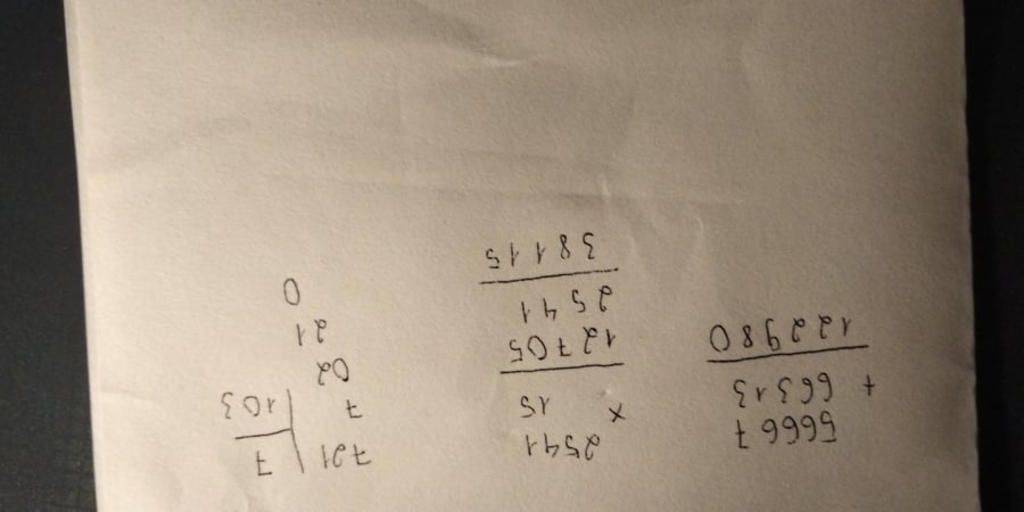 56667
+ 66313
122980
2541
x 15
12705
2541
38115
721 7
7 103
02
21
0